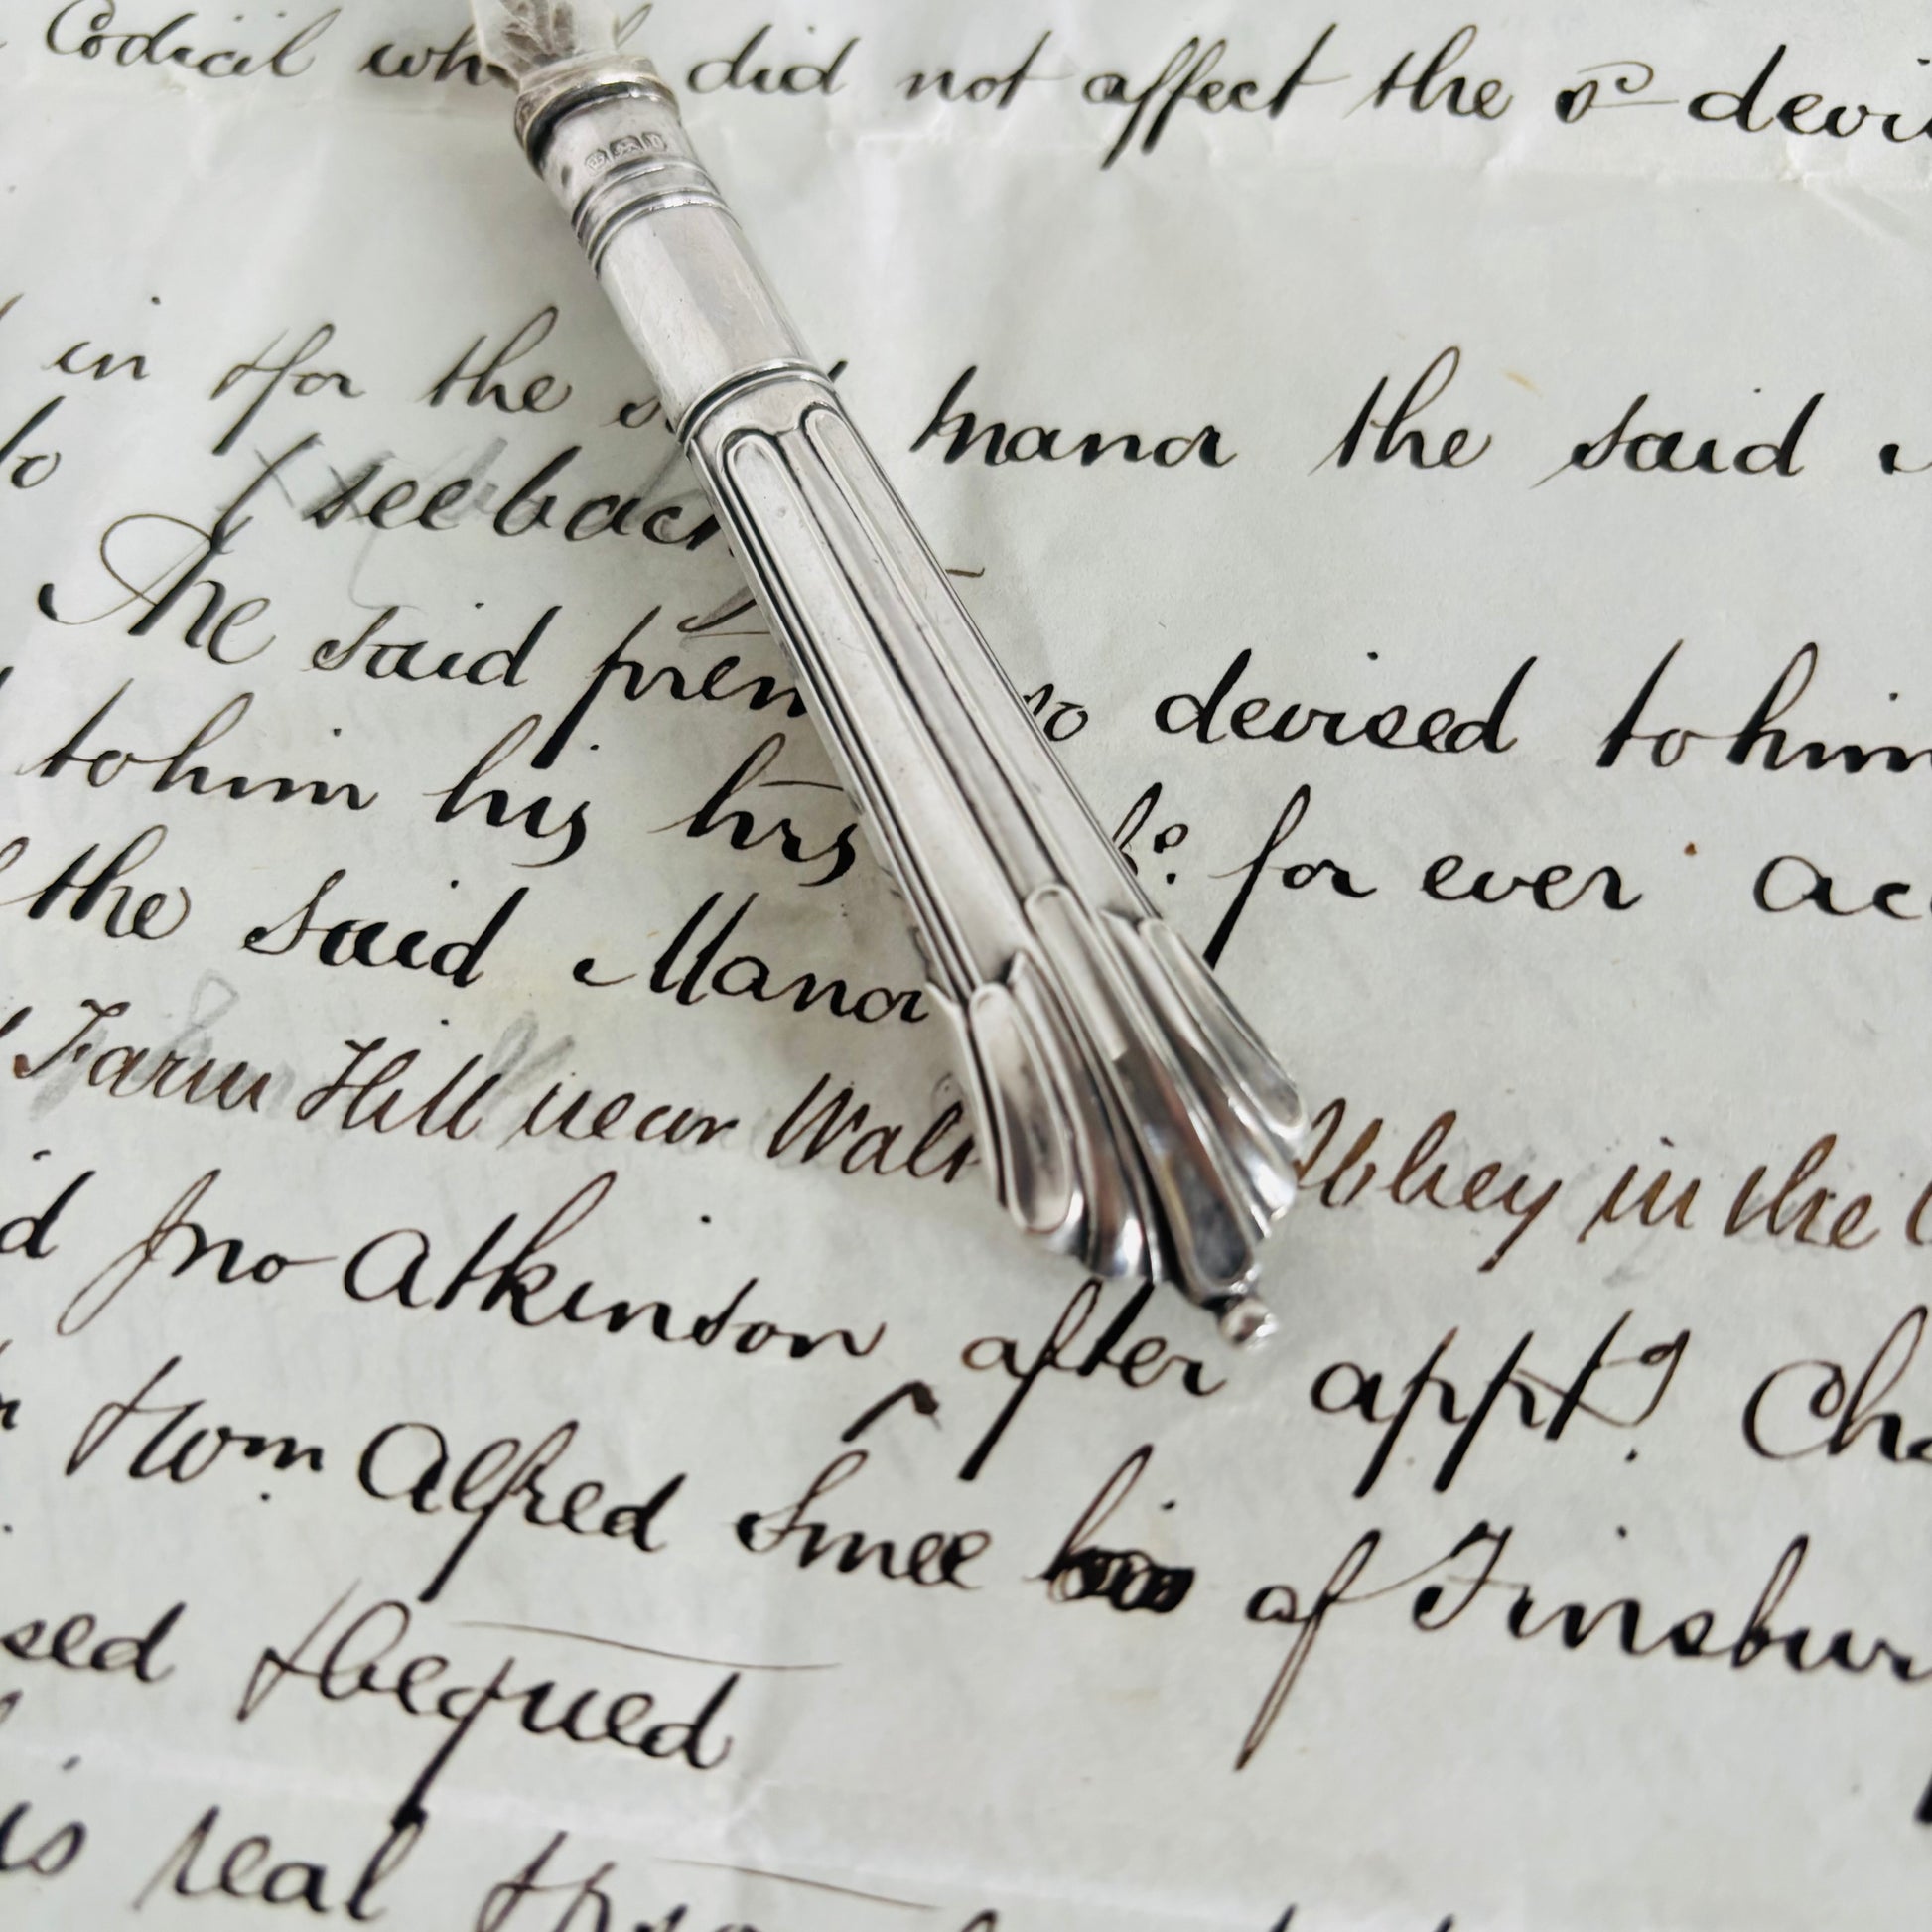 Codicil did not affect the sd devi
in & for the manor the said
to (see back
The said so devised to him
to him his hrs for ever
the said Manor
Farm Hill near Abbey in the
Jno Atkinson after appt.g
& from Alfred Smee of Finsbur
& bequed
is real &